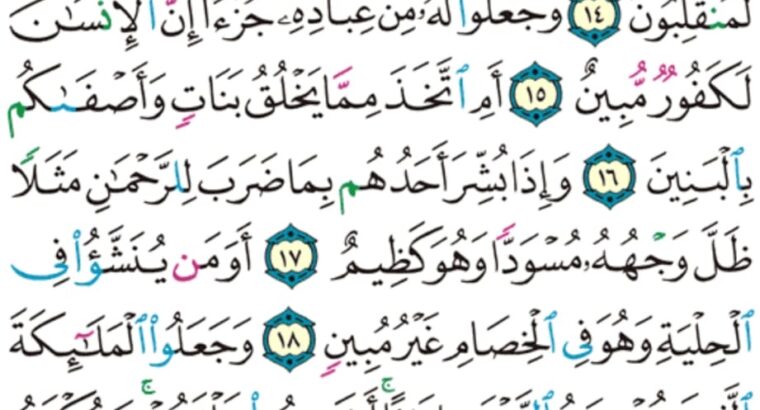 لَمُنقَلِبُونَ ١٤ وَجَعَلُوا۟ لَهُۥ مِنْ عِبَادِهِۦ جُزْءًا إِنَّ ٱلْإِنسَٰنَ
لَكَفُورٌ مُّبِينٌ ١٥ أَمِ ٱتَّخَذَ مِمَّا يَخْلُقُ بَنَاتٍ وَأَصْفَىٰكُم
بِٱلْبَنِينَ ١٦ وَإِذَا بُشِّرَ أَحَدُهُم بِمَا ضَرَبَ لِلرَّحْمَٰنِ مَثَلًا
ظَلَّ وَجْهُهُۥ مُسْوَدًّا وَهُوَ كَظِيمٌ ١٧ أَوَمَن يُنَشَّؤُا۟ فِى
ٱلْحِلْيَةِ وَهُوَ فِى ٱلْخِصَامِ غَيْرُ مُبِينٍ ١٨ وَجَعَلُوا۟ ٱلْمَلَٰٓئِكَةَ